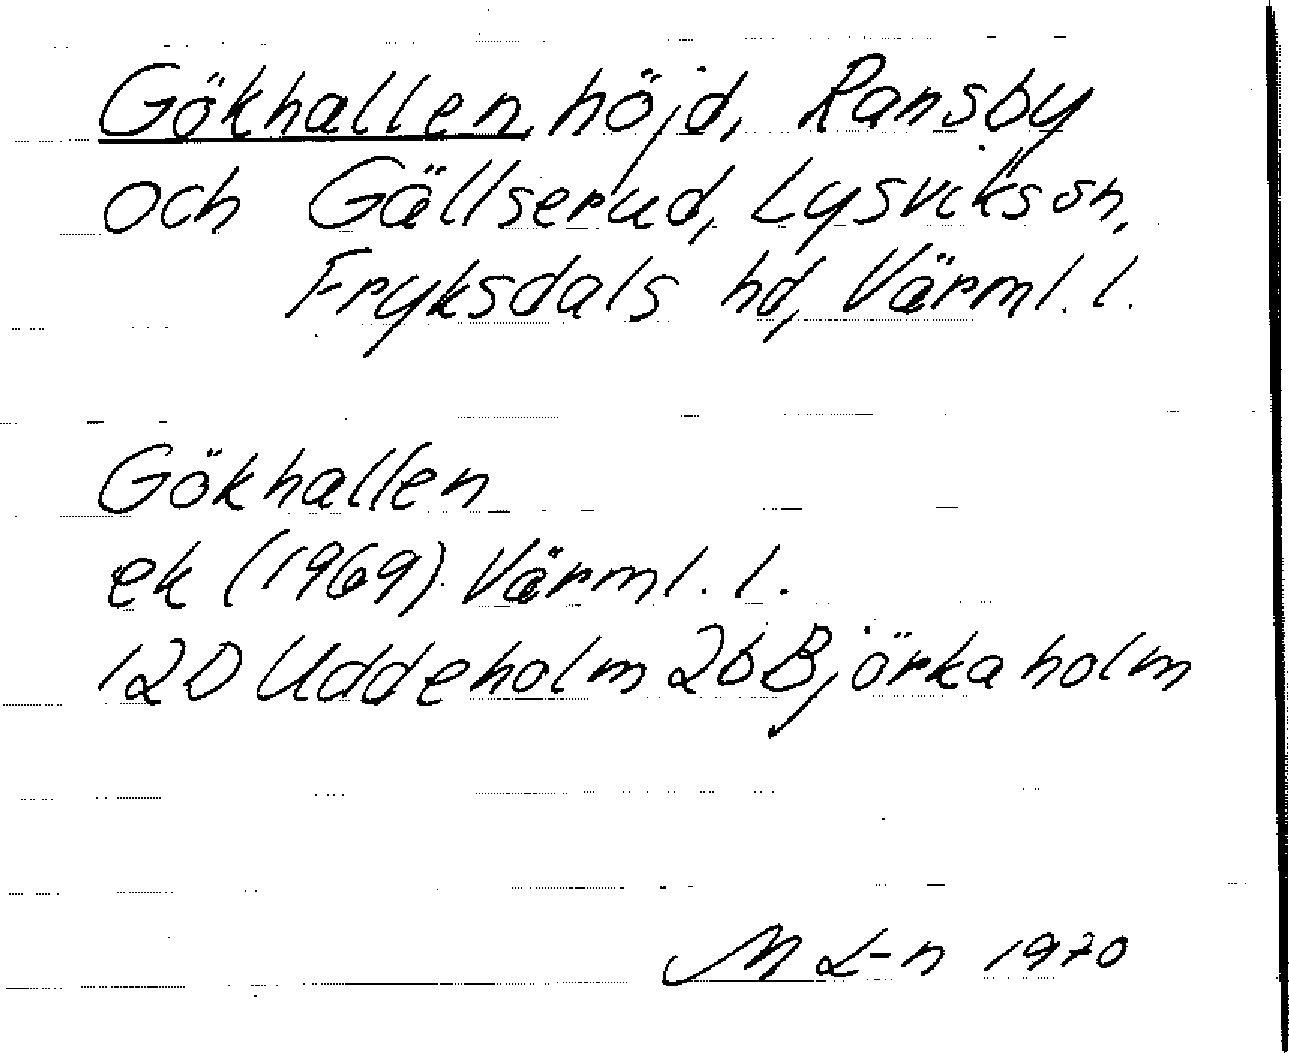 Gökhallen, höjd, Ransby
och Gällserud, Lysvik sn,
Fryksdals hd, Värml. l.
Gökhallen
ek (1969). Värml. l.
12D Uddeholm 2b Björkaholm
M L-n 1970